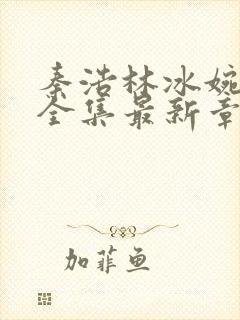 秦浩林冰婉
全集最新章
加菲鱼